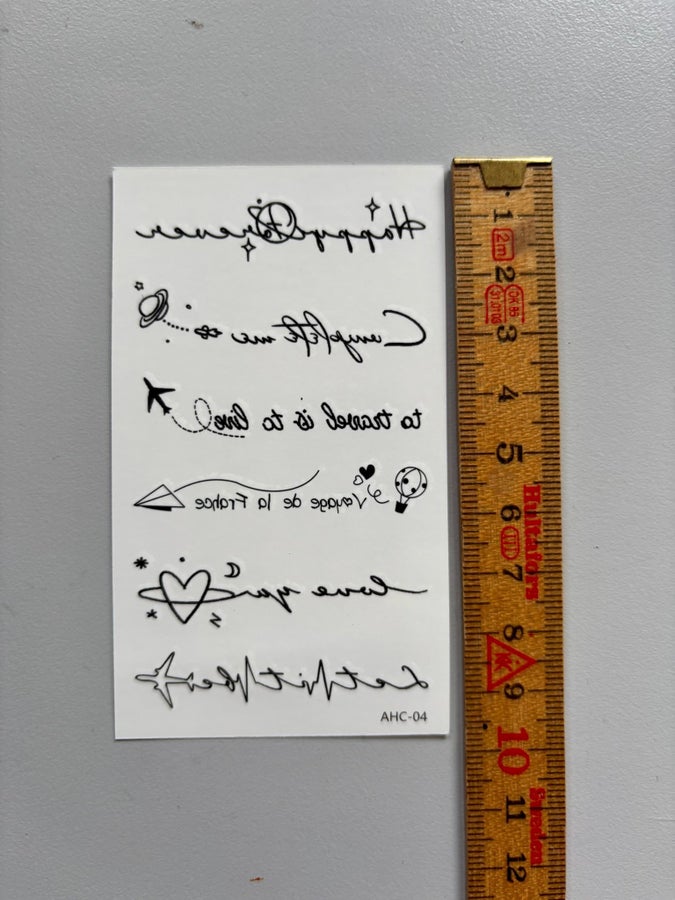 Happy Forever
Complete me
to travel is to live
Voyage de la France
love you
Let it be
AHC-04
1
2m
2
OK 85
3
4
5
6
Hultafors
7
8
9
10
11
Sweden
12